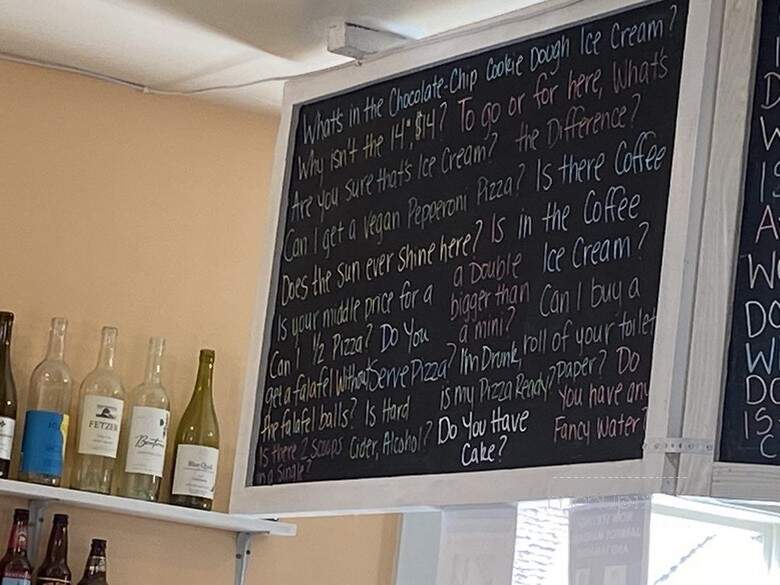 What's in the Chocolate-Chip Cookie Dough Ice Cream?
Why isn't the 14", $14? To go or for here, What's
the Difference?
Are you sure that's Ice Cream?
Can I get a Vegan Pepperoni Pizza? Is there Coffee
in the Coffee
Ice Cream?
Does the Sun ever Shine here? Is
a Double
bigger than
a mini?
Is your middle price for a
1/2 Pizza? Do You
Serve Pizza? I'm Drunk,
is my Pizza Ready?
Can I buy a
roll of your toilet
Paper? Do
You have any
Fancy Water?
Can I
get a falafel without
the falafel balls? Is Hard
Cider, Alcohol? Do You Have
Cake?
Is there 2 Scoops
in a Single?
FETZER
Bonterra
Blue Quail